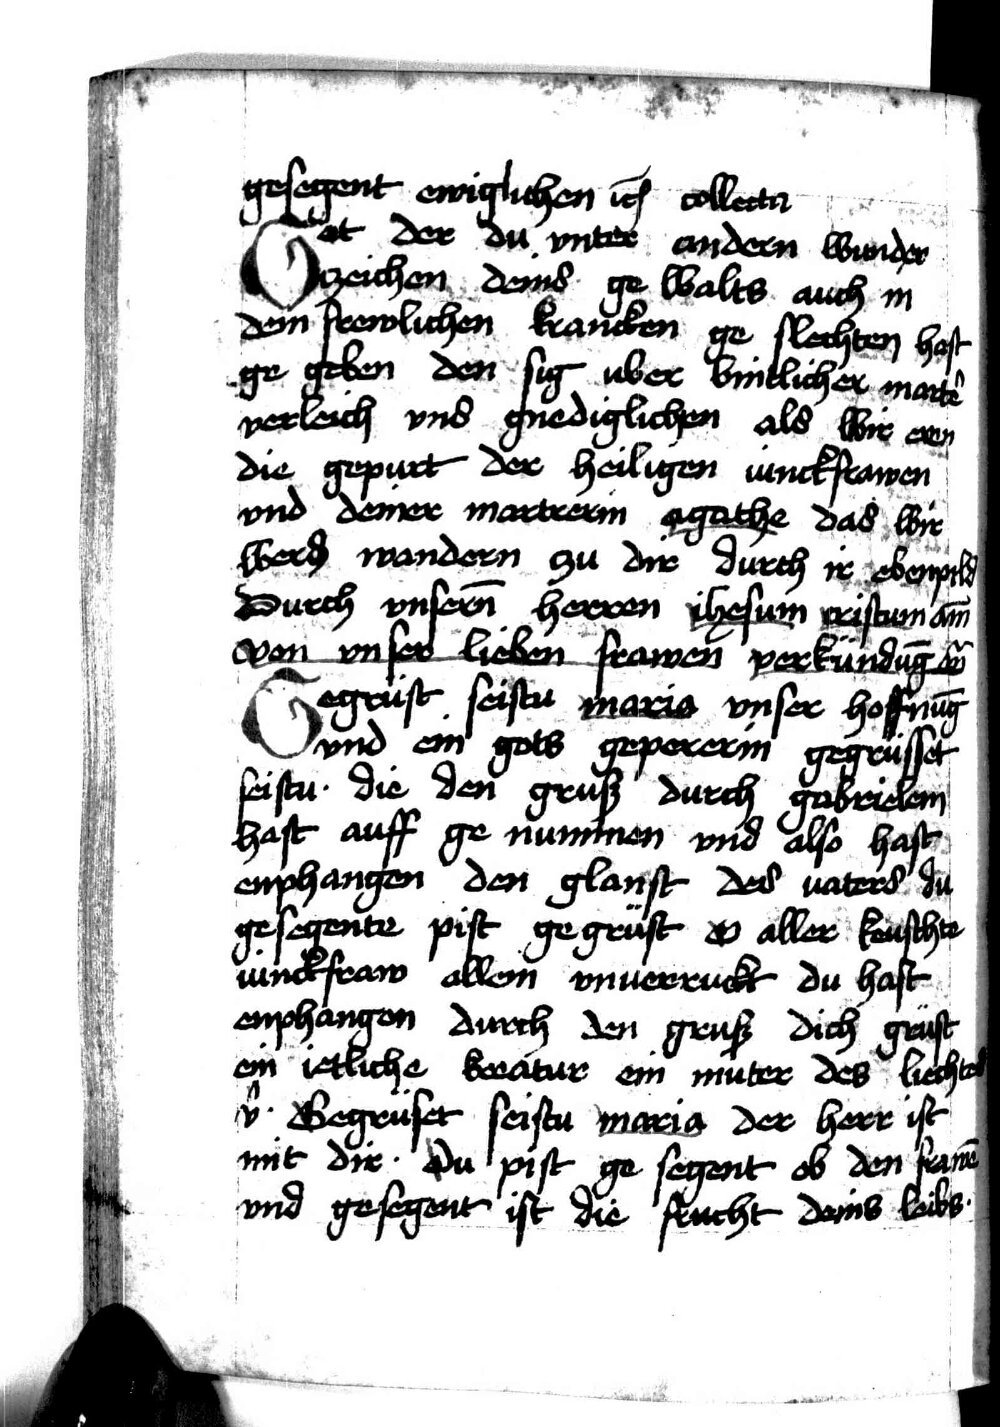 gesegent ewiglichen collecta
Got der du vnter andern wunder
zeichen deins ge walts auch in
dem frewlichen krancken ge slechten hast
ge geben den sig vber vintlicher marte᷑
verleich vns gnediglichen als wir eren
die gepurt der heiligen iunckfrawen
vnd deiner martrerin agathe das wir
wandern zu dir durch ir ebenpild
Durch vnsern̄ herren ihesum cristum am̄
Von vnser lieben frawen verkündūg
Gegrüst seistu maria vnser hoffnūg
vnd ein gots gepererin gegrüsset
seistu · die den gruß durch gabrielem
hast auff ge nummen vnd also hast
enphangen den glanst des vaters du
gesegente pist gegrüst o aller keuschte
iunckfraw allein vnuerruckt du hast
enphangen durch den gruß dich grüst
ein ietliche kreatur ein muter des liechtes
v̂ · Gegrüset seistu maria der herr ist
mit dir · Du pist ge segent ob den frawē
vnd gesegent ist die frucht deins leibs ·